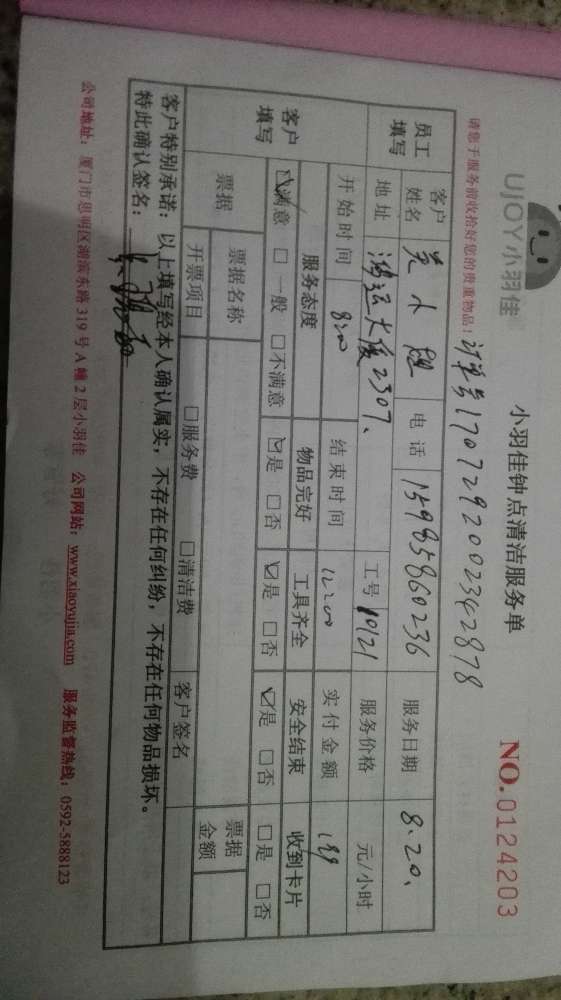 UJOY小羽佳
小羽佳钟点清洁服务单
NO.0124203
请您于服务前收拾好您的贵重物品!
订单号1707292002342878
员工填写
客户姓名
电话 15985860236
服务日期 8.20.
地址 鸿运大厦2307、
工号 10121
服务价格 元/小时
开始时间 8:00
结束时间 12:00
实付金额
客户填写
服务态度 物品完好 工具齐全 安全结束 收到卡片
☑满意 □一般 □不满意 ☑是 □否 ☑是 □否 ☑是 □否 □是 □否
票据
票据名称
票据金额
开票项目 □服务费 □清洁费 客户签名
客户特别承诺:以上填写经本人确认属实,不存在任何纠纷,不存在任何物品损坏。
特此确认签名:
公司地址:厦门市思明区湖滨东路319号A幢2层小羽佳 公司网站:www.xiaoyujia.com 服务监督热线:0592-5888123